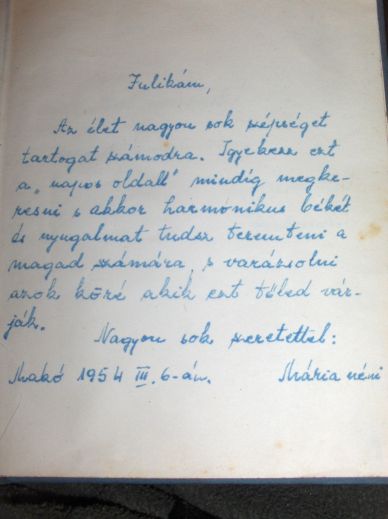 Julikám,
Az élet nagyon sok szépséget
tartogat számodra. Igyekezz ezt
a „napos oldalt" mindig megke-
resni s akkor harmonikus békét
és nyugalmat tudsz teremteni a
magad számára, s varázsolni
azok köré akik ezt tőled vár-
ják.
Nagyon sok szeretettel:
Makó 1954 III. 6-án. Mária néni